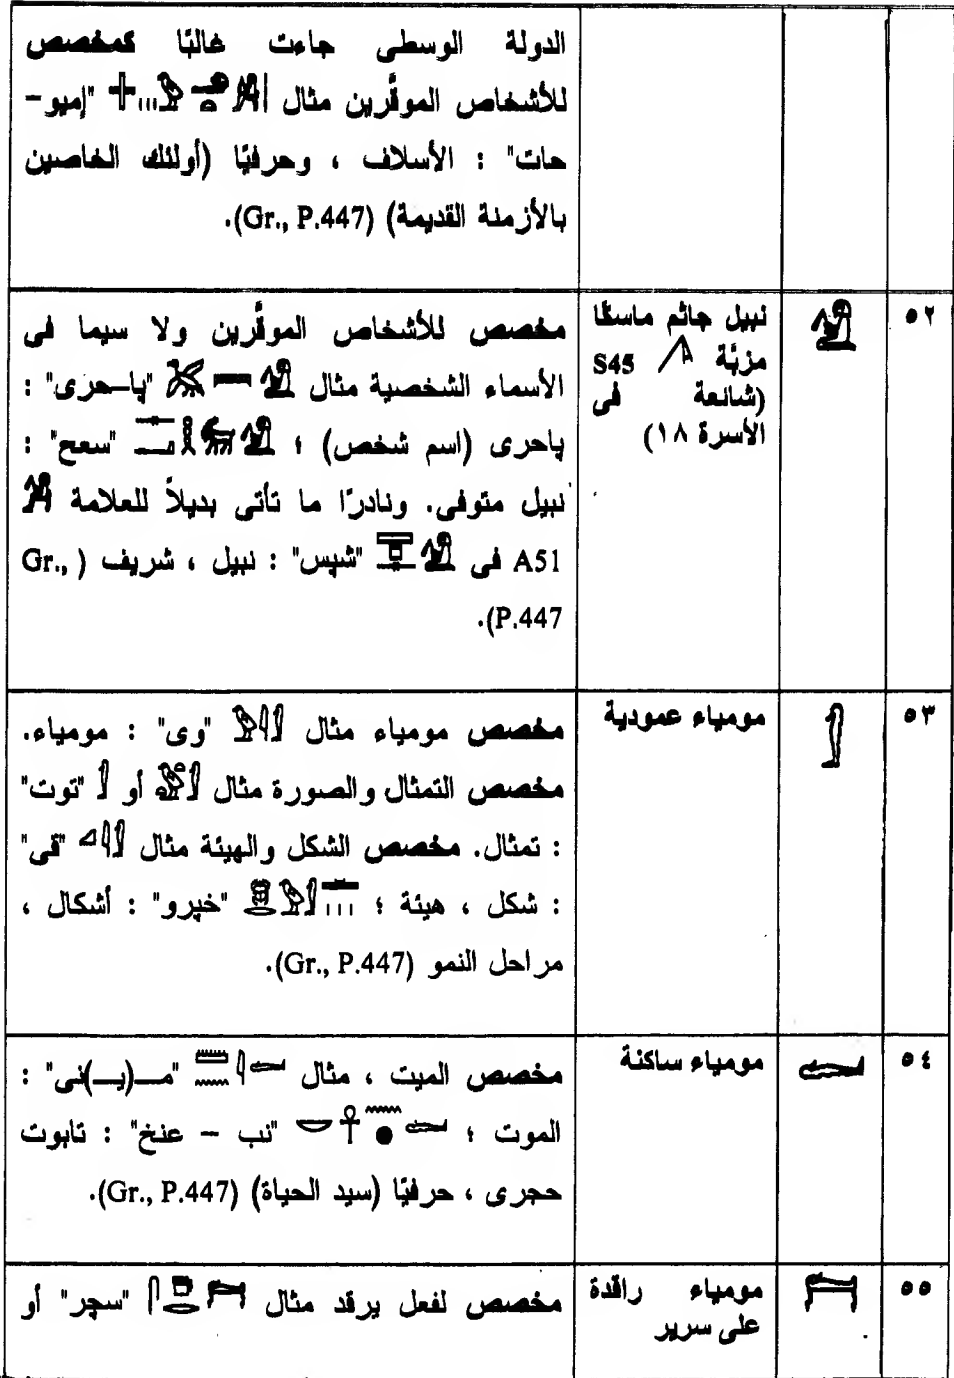 الدولة الوسطى جاءت غالبًا كمخصص
للأشخاص الموقَّرين مثال "إميو-
حات" : الأسلاف ، وحرفيًا (أولئك الخاصين
بالأزمنة القديمة) (Gr., P.447).
٥٢
نبيل جاثم ماسكًا
مزبَّة S45
(شائعة فى
الأسرة ١٨)
مخصص للأشخاص الموقَّرين ولا سيما فى
الأسماء الشخصية مثال "پا-حرى" :
پاحرى (اسم شخص) ؛ "سعح" :
نبيل متوفى. ونادرًا ما تأتى بديلاً للعلامة
A51 فى "شپس" : نبيل ، شريف (Gr.,
P.447).
٥٣
مومياء عمودية
مخصص مومياء مثال "وى" : مومياء.
مخصص التمثال والصورة مثال أو "توت"
: تمثال. مخصص الشكل والهيئة مثال "قى"
: شكل ، هيئة ؛ "خپرو" : أشكال ،
مراحل النمو (Gr., P.447).
٥٤
مومياء ساكنة
مخصص الميت ، مثال "مـ(يـ)نى" :
الموت ؛ "نب – عنخ" : تابوت
حجرى ، حرفيًا (سيد الحياة) (Gr., P.447).
٥٥
مومياء راقدة
على سرير
مخصص لفعل يرقد مثال "سچر" أو